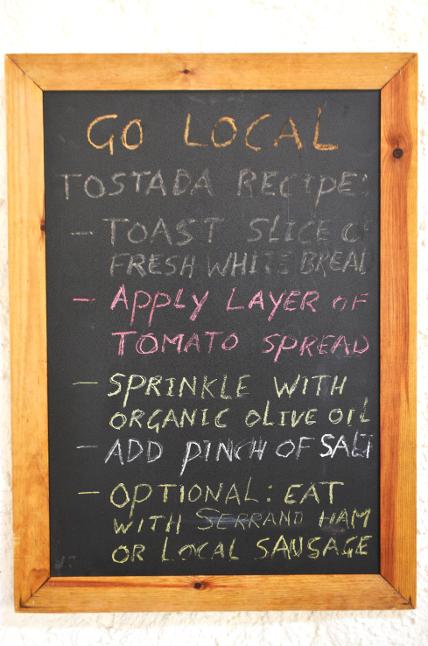 GO LOCAL
TOSTADA RECIPE:
- TOAST SLICE O
FRESH WHITE BREAD
- APPLY LAYER OF
TOMATO SPREAD
- SPRINKLE WITH
ORGANIC OLIVE OIL
- ADD PINCH OF SALT
- OPTIONAL: EAT
WITH SERRANO HAM
OR LOCAL SAUSAGE